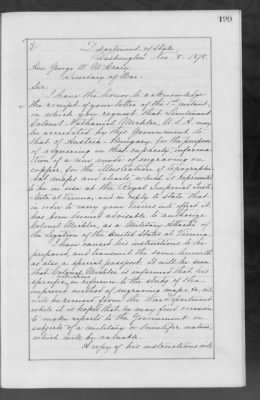 199
Department of State,
Washington Nov. 8. 1878.
Hon George W. McCrary
Secretary of War.
Sir:
I have the honor to acknowledge
the receipt of your letter of the 1st instant,
in which you request that Lieutenant
Colonel Nathaniel Michler, U.S.A. may
be accredited by this Government to
that of Austria-Hungary, for the purpose
of acquiring in that capacity, informa-
tion of a new mode of engraving on
copper for the illustration of topographi-
cal maps and charts, which is reported
to be in use at the Royal Imperial Insti-
tute at Vienna, and in reply to state that
in order to carry your views into effect it
has been deemed advisable to authorize
Colonel Michler, as a Military Attaché of
the Legation of the United States at Vienna.
I have caused his instructions to be
prepared, and transmit the same herewith
as also a special passport. It will be seen
that Colonel Michler is informed that his
specific instructions in reference to the study of the
improved method of engraving maps, &c, will
will be received from the War Department
while it is hoped that he may find occasion
to make reports to the Government on
subjects of a military or scientific nature
which will be valuable.
A copy of his instructions will